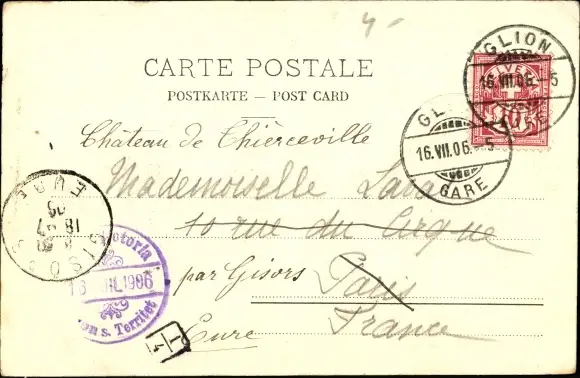 4
CARTE POSTALE
POSTKARTE – POST CARD
GLION
16.VII.06.–5
GARE
16.VII.06.–5
GARE
Château de Thierceville
Mademoiselle Lara
10 rue du Cirque
par Gisors Paris
Eure France
GISORS
EURE
18 7
06
Victoria
16 JUIL 1906
s. Territet